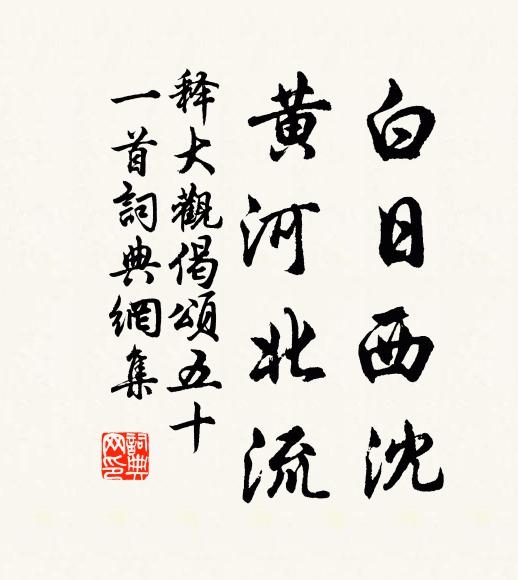 白日西沈
黄河北流
释大觀偈頌五十
一首詞典網集
詞典
网印